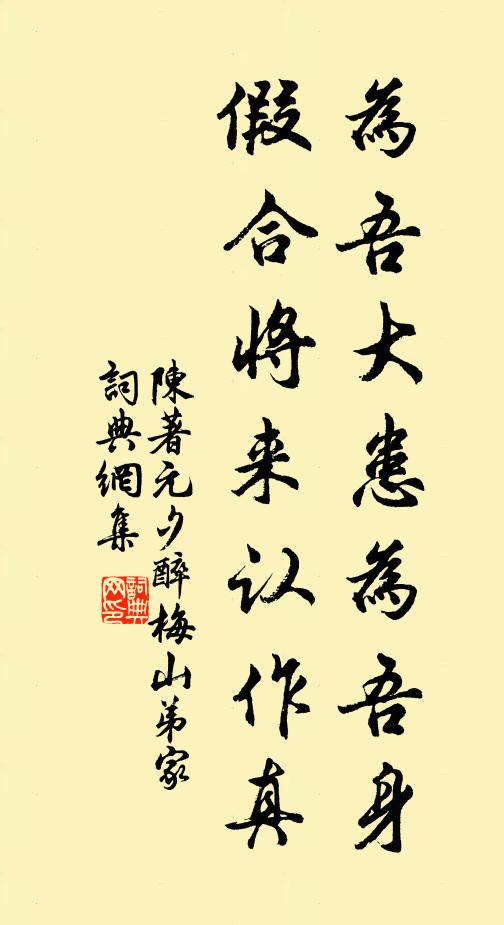 為吾大患為吾身
假合將来认作真
陳著元夕醉梅山弟家
詞典網集
詞典網印